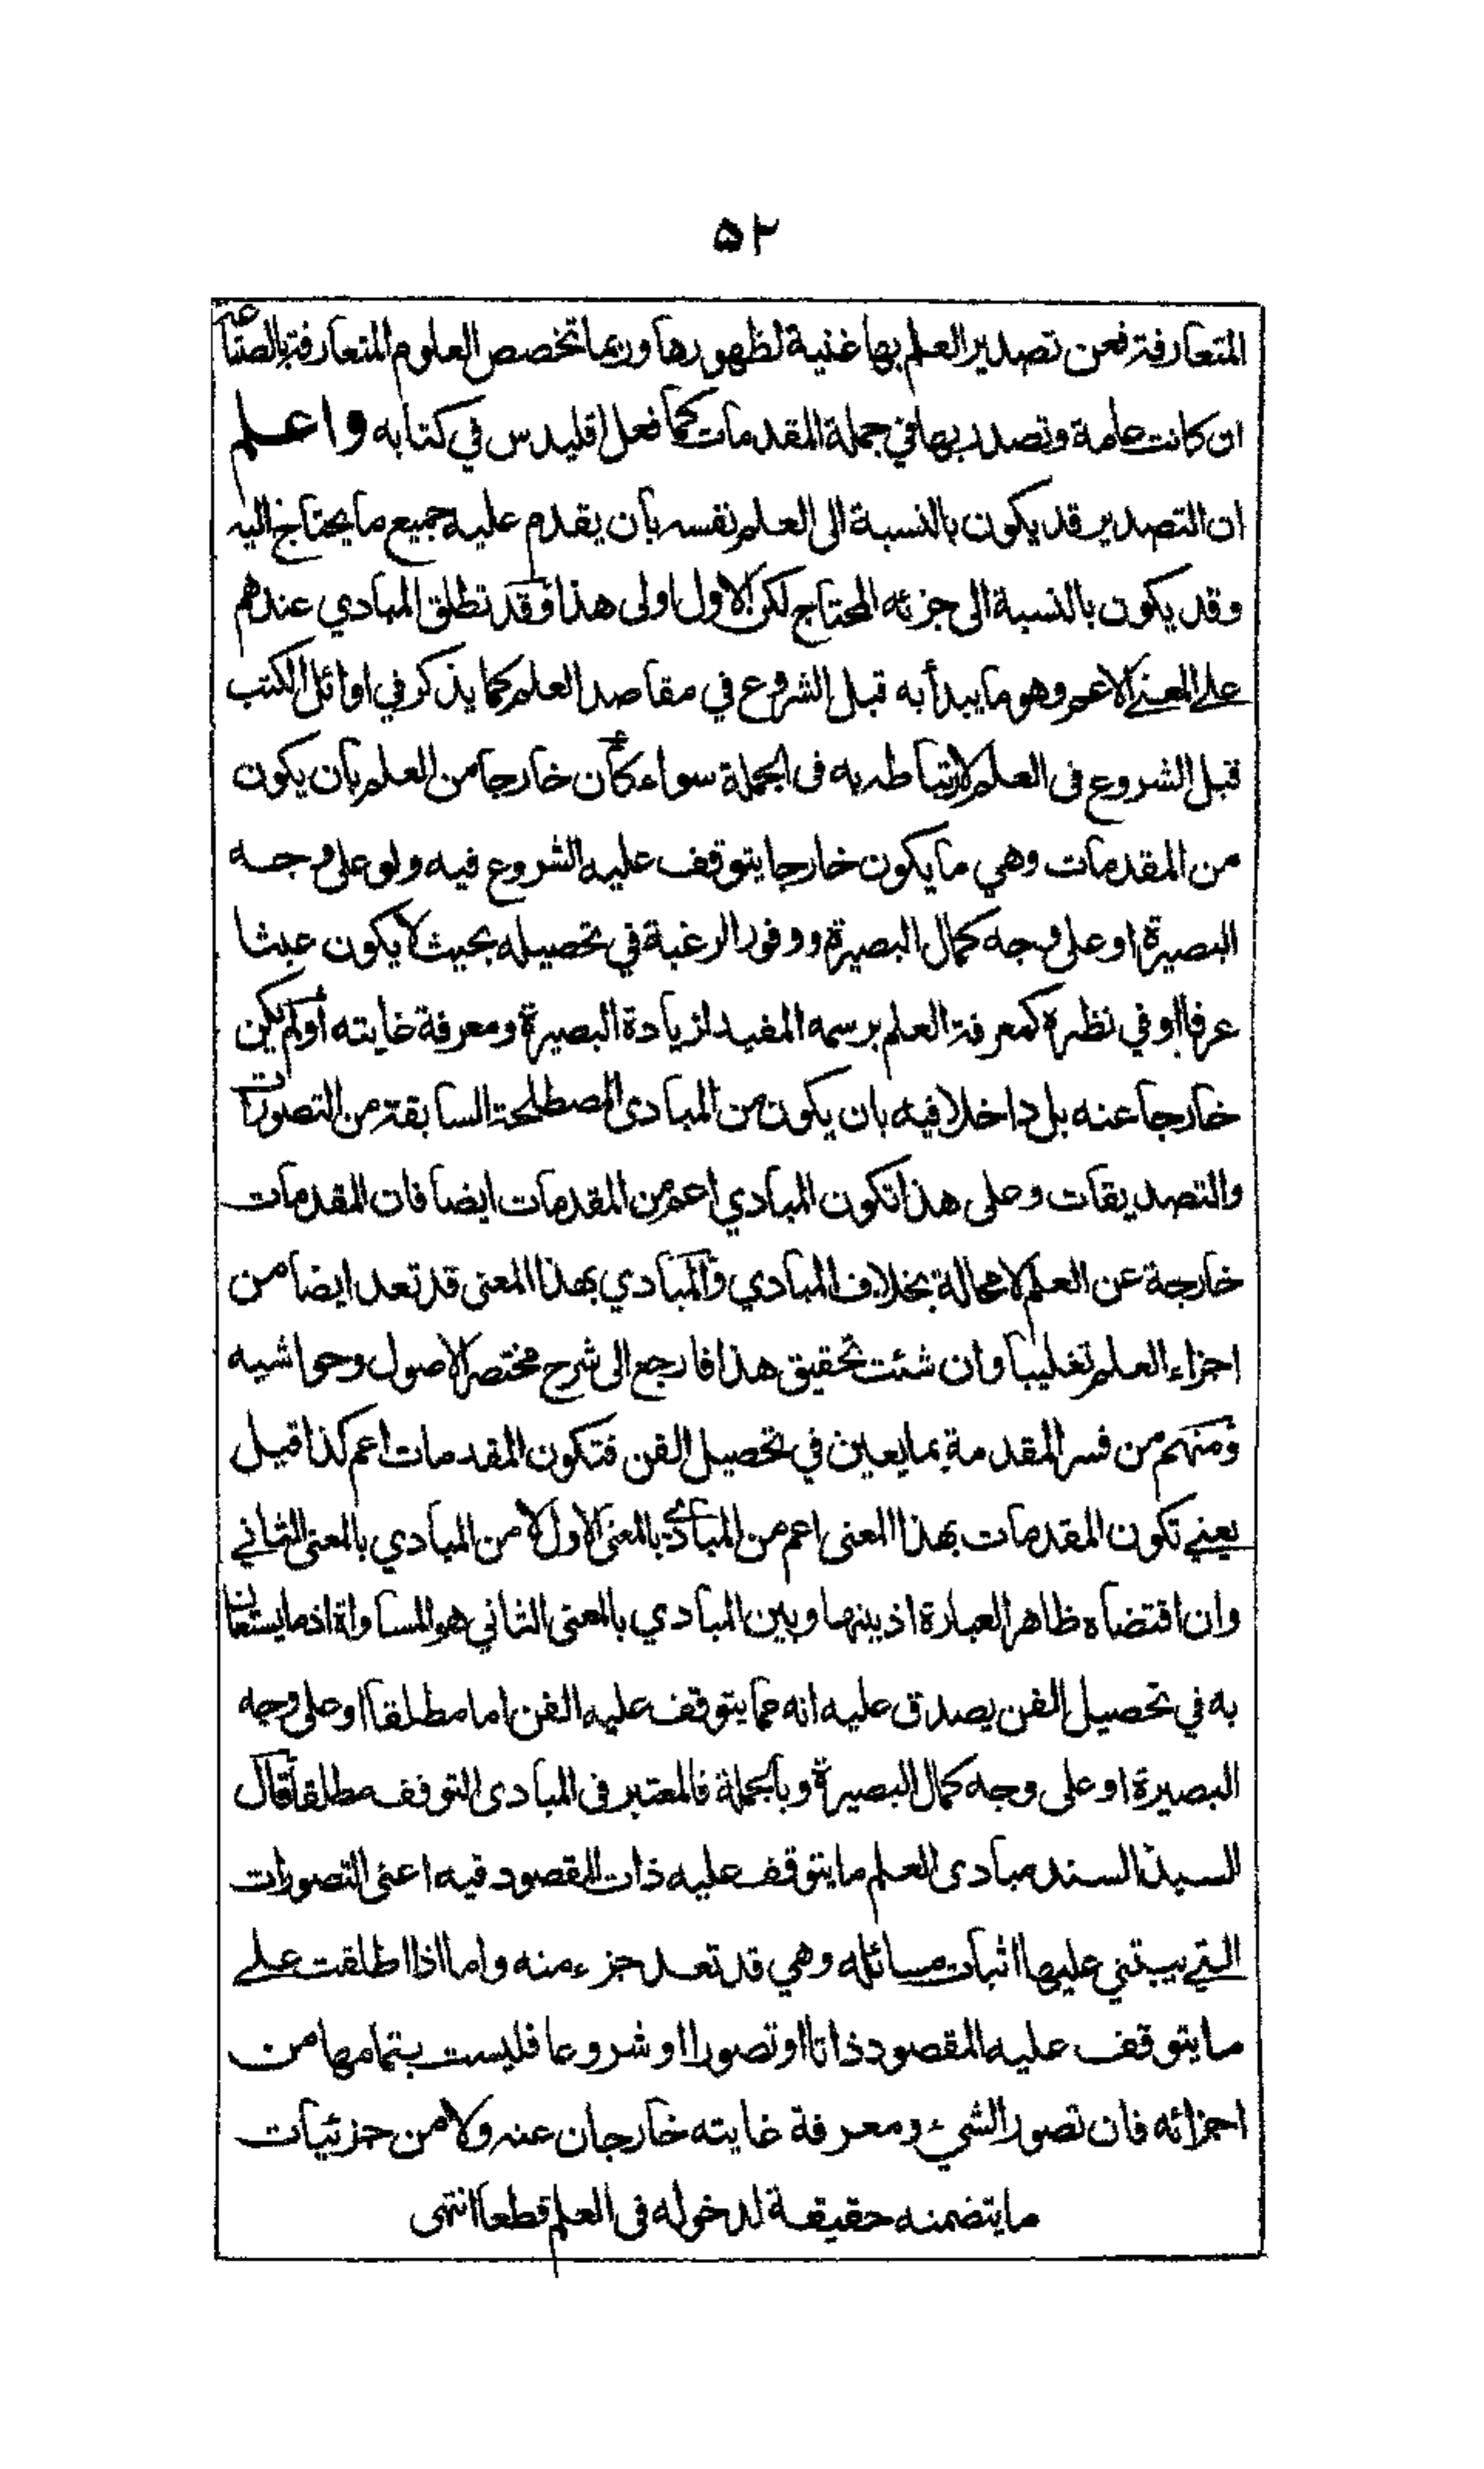 ٥٢
المتعارفة فعن تصدير العلم بها غنية لظهورها وربما تخصص العلوم المتعارفة بالصناعة
ان كانت عامة وتصدر بها في جملة المقدمات كما فعل اقليدس في كتابه واعلم
ان التصدير قد يكون بالنسبة الى العلم نفسه بان يقدم عليه جميع ما يحتاج اليه
وقد يكون بالنسبة الى جزئه المحتاج لكن الاول اولى هذا وقد تطلق المبادي عندهم
على المعنى الاعم وهو ما يبدأ به قبل الشروع في مقاصد العلم كما يذكر في اوائل الكتب
قبل الشروع فى العلم لارتباطه به فى الجملة سواء كان خارجا من العلم بان يكون
من المقدمات وهي ما يكون خارجا يتوقف عليه الشروع فيه ولو على وجه
البصيرة او على وجه كمال البصيرة ووفور الرغبة في تحصيله بحيث لا يكون عبثا
عرفا او في نظره كمعرفة العلم برسمه المفيد لزيادة البصيرة ومعرفة غايته أو لم يكن
خارجا عنه بل داخلا فيه بان يكون من المبادى المصطلحة السابقة من التصورات
والتصديقات وعلى هذا تكون المبادي اعم من المقدمات ايضا فان المقدمات
خارجة عن العلم لا محالة بخلاف المبادي والمبادي بهذا المعنى قد تعد ايضا من
اجزاء العلم تغليبا وان شئت تحقيق هذا فارجع الى شرح مختصر الاصول وحواشيه
ومنهم من فسر المقدمة بما يعين في تحصيل الفن فتكون المقدمات اعم كذا قيل
يعني تكون المقدمات بهذا المعنى اعم من المبادي بالمعنى الاول لا من المبادي بالمعنى الثاني
وان اقتضاه ظاهر العبارة اذ بينها وبين المبادي بالمعنى الثاني هو المساواة اذ ما يستعان
به في تحصيل الفن يصدق عليه انه مما يتوقف عليه الفن اما مطلقا او على وجه
البصيرة او على وجه كمال البصيرة وبالجملة فالمعتبر فى المبادى التوقف مطلقا قال
السيد السند مبادى العلم ما يتوقف عليه ذات المقصود فيه اعنى التصورات
التي يبتني عليها اثبات مسائله وهي قد تعد جزء منه واما اذا اطلقت على
ما يتوقف عليه المقصود ذاتا او تصورا او شروعا فليست بتمامها من
اجزائه فان تصور الشيء ومعرفة غايته خارجان عنه ولا من جزئيات
ما يتضمنه حقيقة لدخوله فى العلم قطعا انتهى